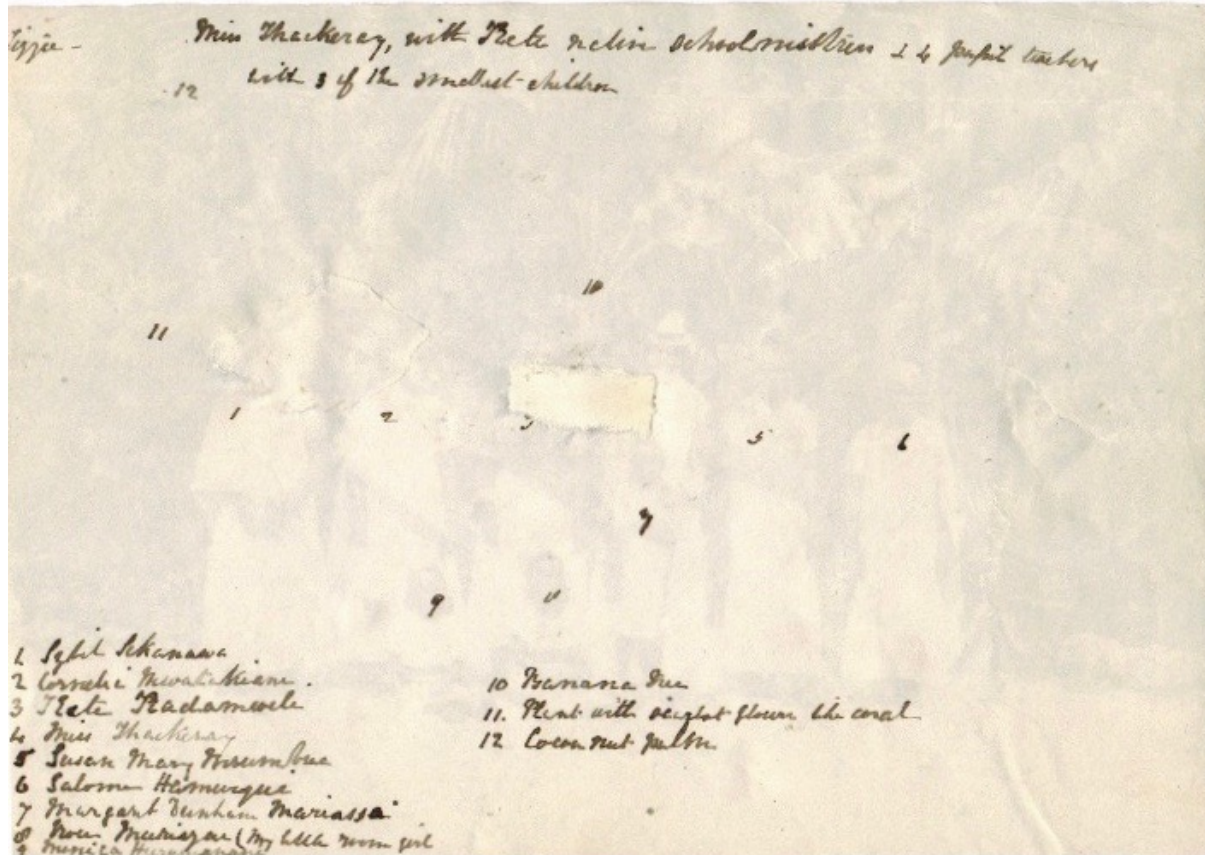 Lizzie -
Miss Thackeray, with Kate native schoolmistress & 4 pupil teachers
with 3 of the smallest children
12
10
11
1
2
3
5
6
7
9
8
1 Sybil
2 Cornelia
3 Kate Kadamweli
4 Miss Thackeray
5 Susan Mary
6 Salome
7 Margaret Durham Mariassa
8 (My little room girl
9 Monica
10 Banana tree
11. Plant with scarlet flower like coral
12 Cocoa nut palm